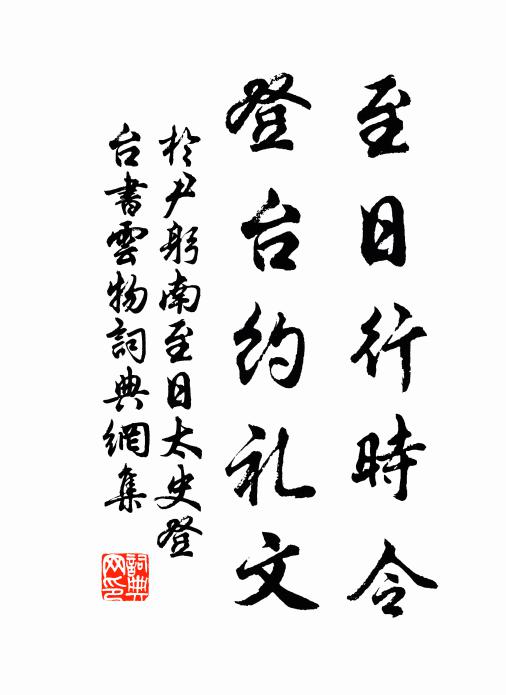 至日行時令
登台约礼文
於尹躬南至日太史登
台書雲物詞典網集
詞典网印